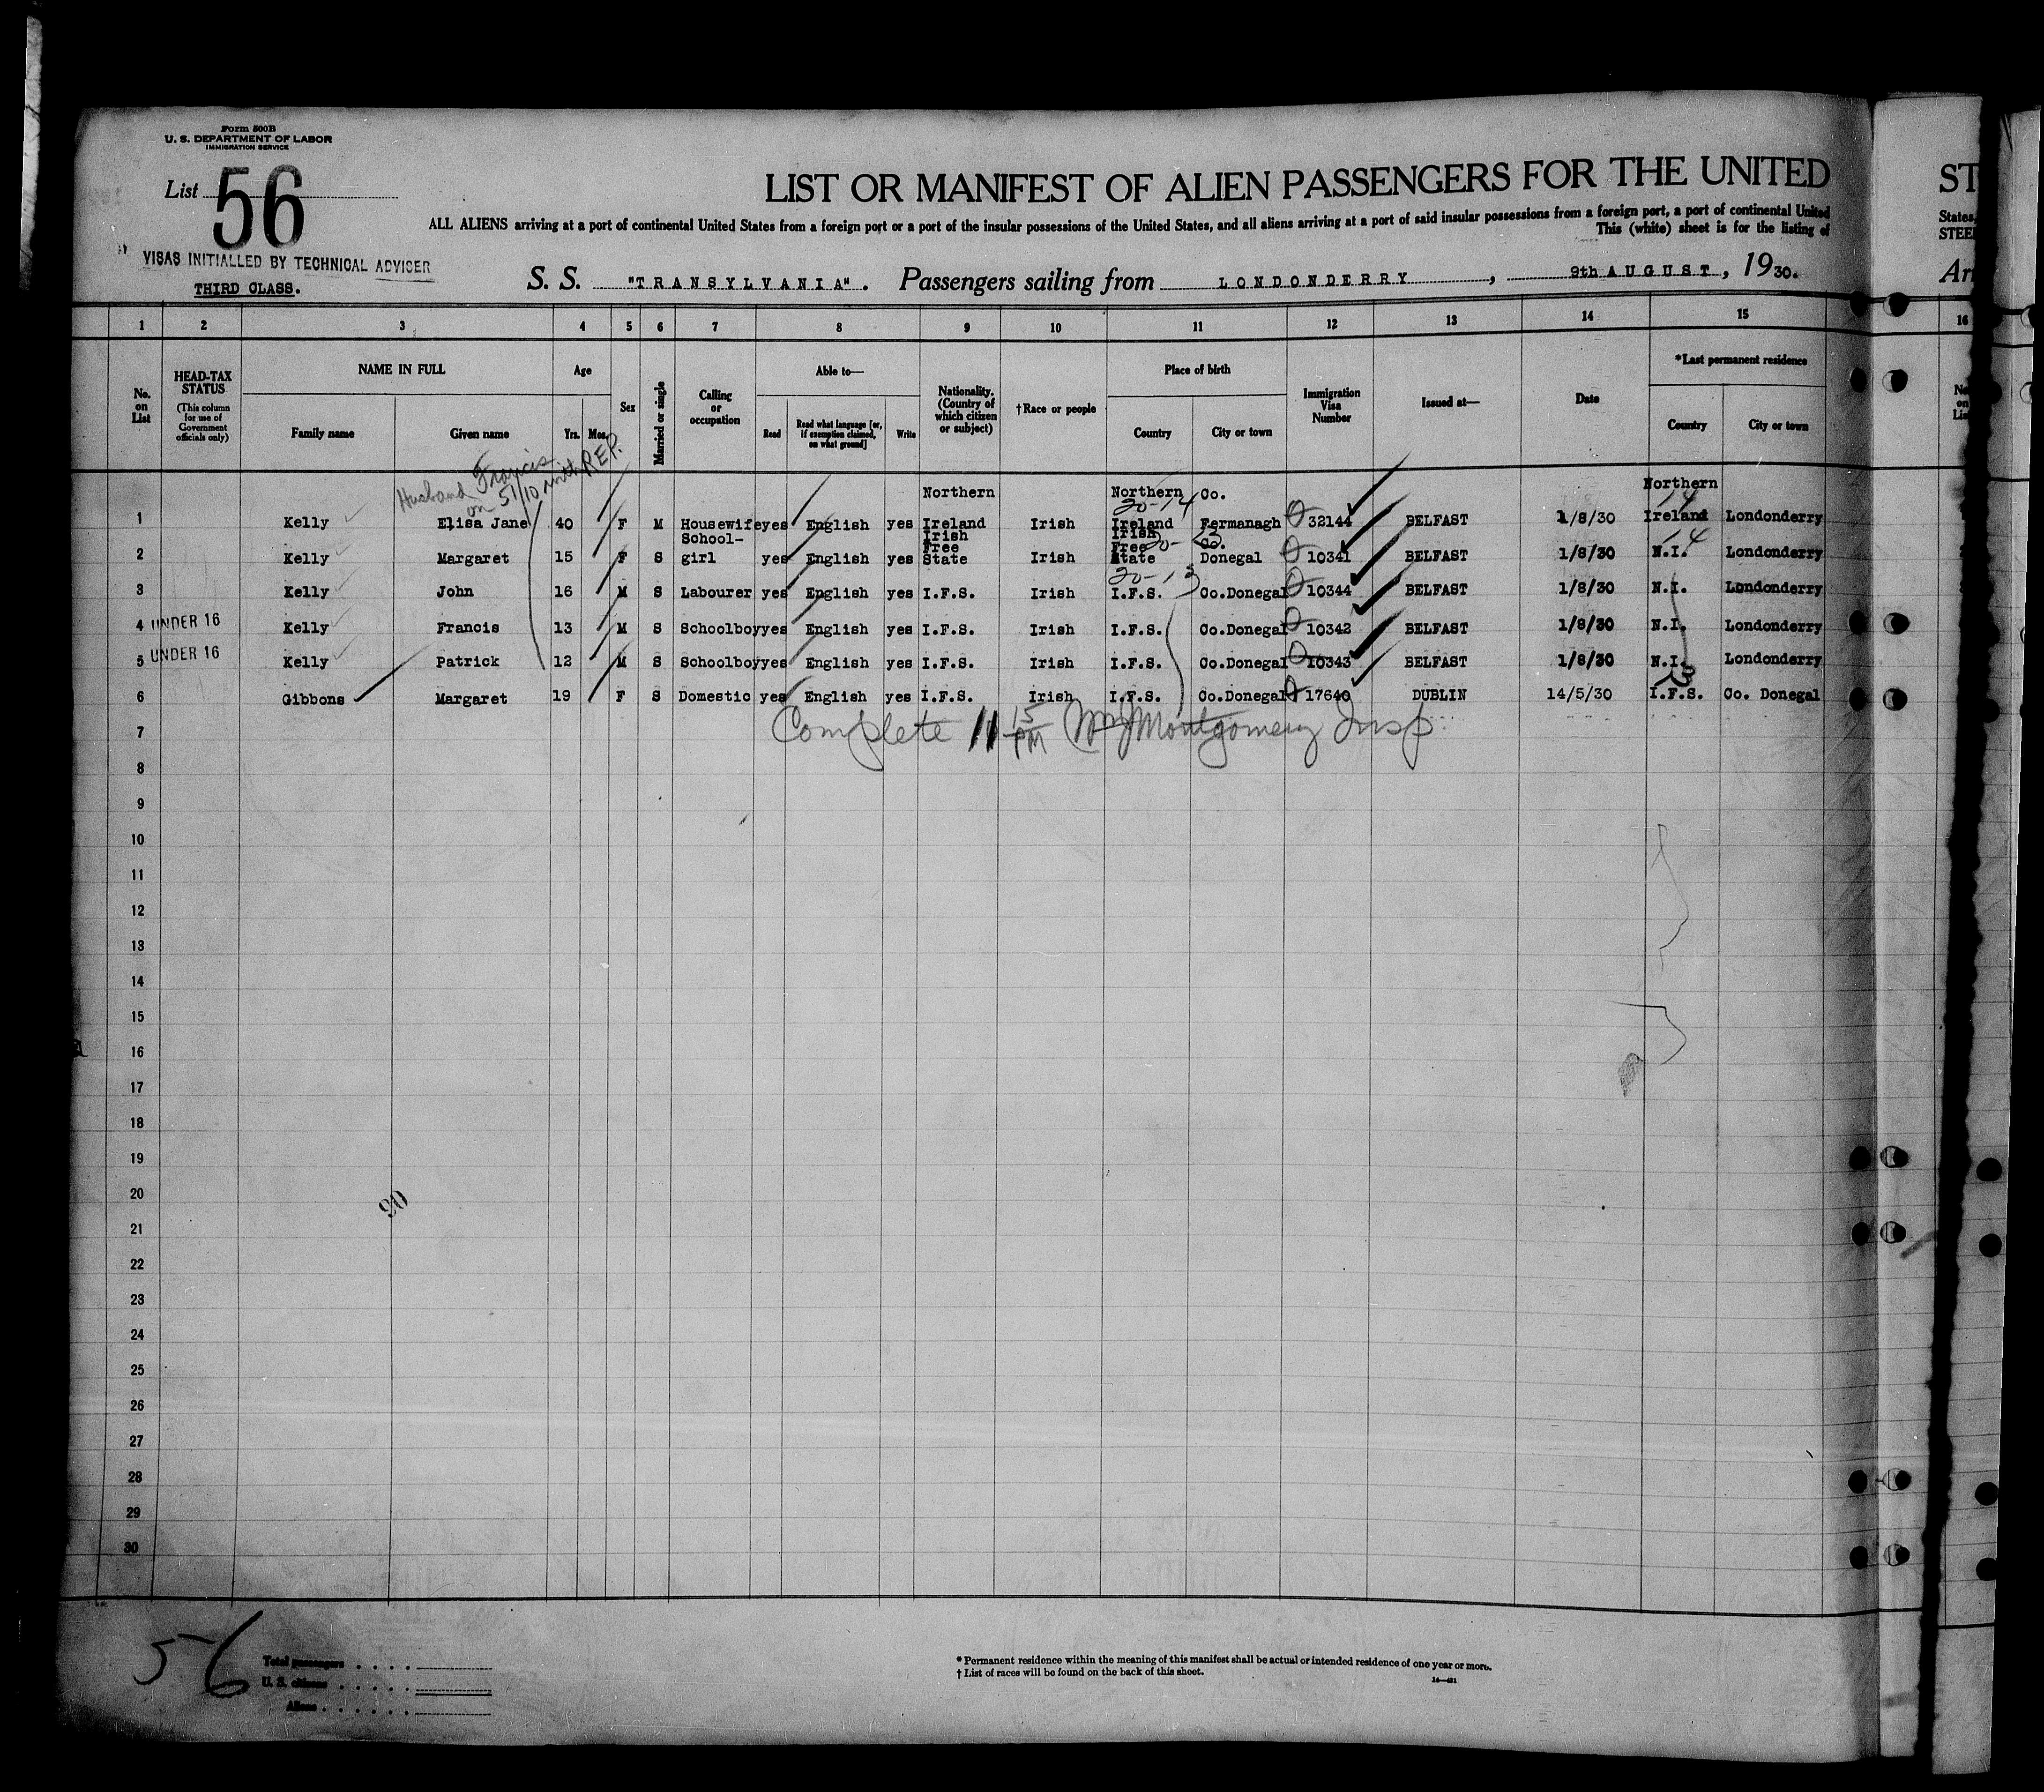 Form 500B
U. S. DEPARTMENT OF LABOR
IMMIGRATION SERVICE
List 56
VISAS INITIALLED BY TECHNICAL ADVISER
THIRD CLASS.
LIST OR MANIFEST OF ALIEN PASSENGERS FOR THE UNITED
ALL ALIENS arriving at a port of continental United States from a foreign port or a port of the insular possessions of the United States, and all aliens arriving at a port of said insular possessions from a foreign port, a port of continental United
This (white) sheet is for the listing of
S. S. "TRANSYLVANIA". Passengers sailing from LONDONDERRY, 9th AUGUST, 1930.
ST
States,
Arr
1 2 3 4 5 6 7 8 9 10 11 12 13 14 15 16
No. on List
HEAD-TAX STATUS
(This column for use of Government officials only)
NAME IN FULL
Family name
Given name
Age
Yrs. Mos.
Sex
Married or single
Calling or occupation
Able to—
Read
Read what language [or, if exemption claimed, on what ground]
Write
Nationality. (Country of which citizen or subject)
†Race or people
Place of birth
Country
City or town
Immigration Visa Number
Issued at—
Date
*Last permanent residence
Country
City or town
Husband Francis
on 51/10 with REP.
1 Kelly Elisa Jane 40 F M Housewife yes English yes Northern Ireland Irish Northern Ireland Co. Fermanagh 32144 BELFAST 1/8/30 Northern Ireland Londonderry
20-14 14
2 Kelly Margaret 15 F S School-girl yes English yes Irish Free State Irish Irish Free State Co. Donegal 10341 BELFAST 1/8/30 N.I. Londonderry
20-13 14
3 Kelly John 16 M S Labourer yes English yes I.F.S. Irish I.F.S. Co.Donegal 10344 BELFAST 1/8/30 N.I. Londonderry
20-13
4 UNDER 16 Kelly Francis 13 M S Schoolboy yes English yes I.F.S. Irish I.F.S. Co.Donegal 10342 BELFAST 1/8/30 N.I. Londonderry
5 UNDER 16 Kelly Patrick 12 M S Schoolboy yes English yes I.F.S. Irish I.F.S. Co.Donegal 10343 BELFAST 1/8/30 N.I. Londonderry
13
6 Gibbons Margaret 19 F S Domestic yes English yes I.F.S. Irish I.F.S. Co.Donegal 17640 DUBLIN 14/5/30 I.F.S. Co. Donegal
7
Complete 11 15 PM Wm J Montgomery Insp.
8
9
10
11
12
13
14
15
16
17
18
19
20
90
21
22
23
24
25
26
27
28
29
30
56
Total passengers
U. S. citizens
Aliens
* Permanent residence within the meaning of this manifest shall be actual or intended residence of one year or more.
† List of races will be found on the back of this sheet.